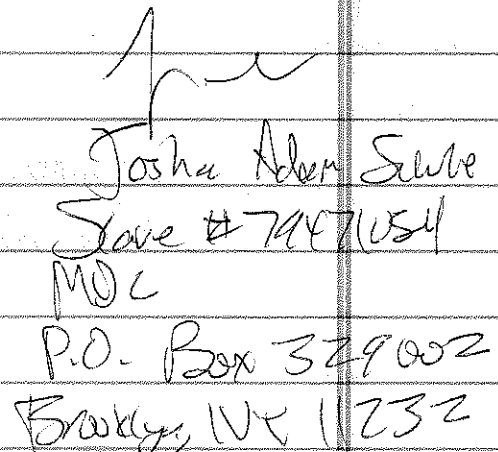 Josha Adam
Slave #79471054
MDC
P.O. Box 329002
Brooklyn, NY 11232